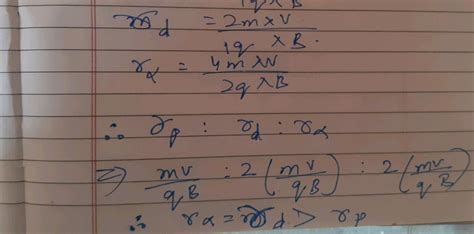 qxB
r_d = 2m×V / 1q ×B.
r_α = 4m×V / 2q×B
∴ r_p : r_d : r_α
⇒ mv/qB : 2(mv/qB) : 2(mv/qB)
∴ r_α = r_d > r_p